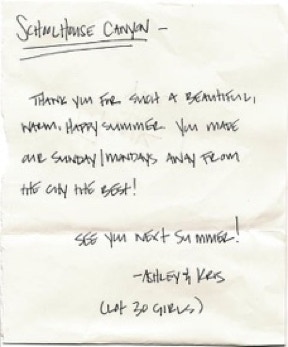 SCHOOLHOUSE CANYON -
THANK YOU FOR SUCH A BEAUTIFUL,
WARM, HAPPY SUMMER. YOU MADE
OUR SUNDAY/MONDAYS AWAY FROM
THE CITY THE BEST!
SEE YOU NEXT SUMMER!
-ASHLEY & KRIS
(LOT 30 GIRLS)